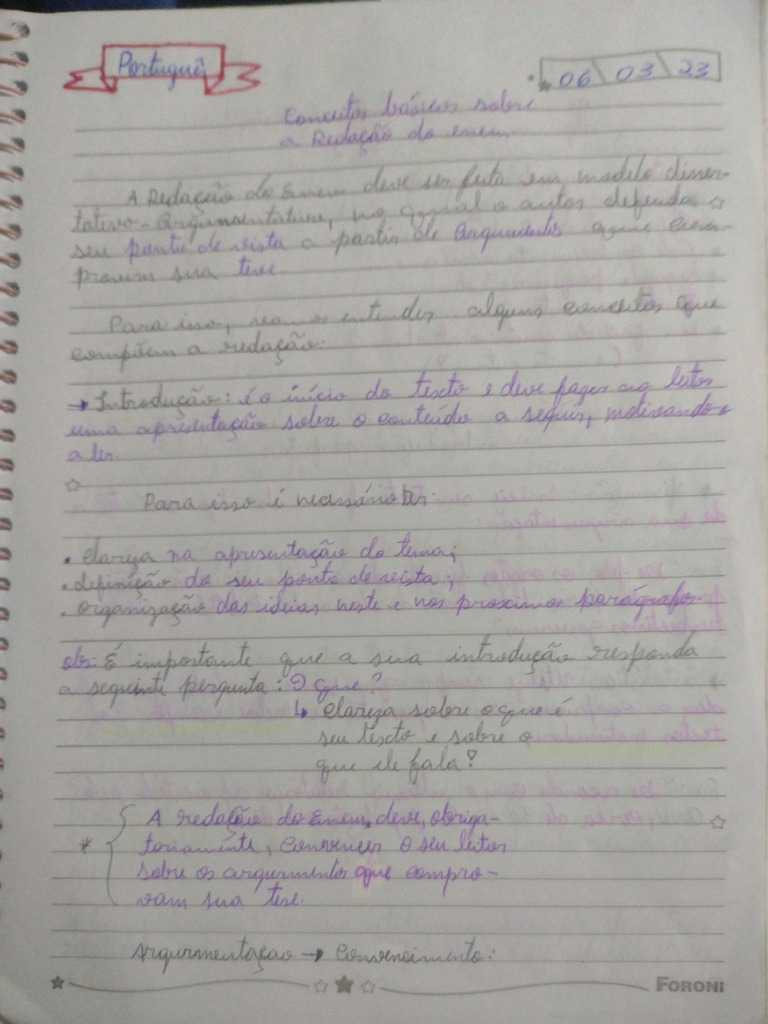 Português
06 03 23
Conceitos básicos sobre
a Redação do enem
A Redação do Enem deve ser feita em modelo disser-
tativo-Argumentativo, no qual o autor defenda
seu ponto de vista a partir de argumentos que com-
provem sua tese.
Para isso, vamos entender alguns conceitos que
compõem a redação:
→ Introdução: é o início do texto e deve fazer ao leitor
uma apresentação sobre o conteúdo a seguir, motivando-o
a ler.
Para isso é necessário ter:
• clareza na apresentação do tema;
• definição do seu ponto de vista;
• organização das ideias neste e nos proximos parágrafos.
obs: É importante que a sua introdução responda
a seguinte pergunta: O que?
↳ clareza sobre o que é
seu texto e sobre o
que ele fala?
* A redação do Enem, deve, obriga-
toriamente, convencer o seu leitor
sobre os argumentos que compro-
vam sua tese.
Argurmentação → Convencimento:
FORONI